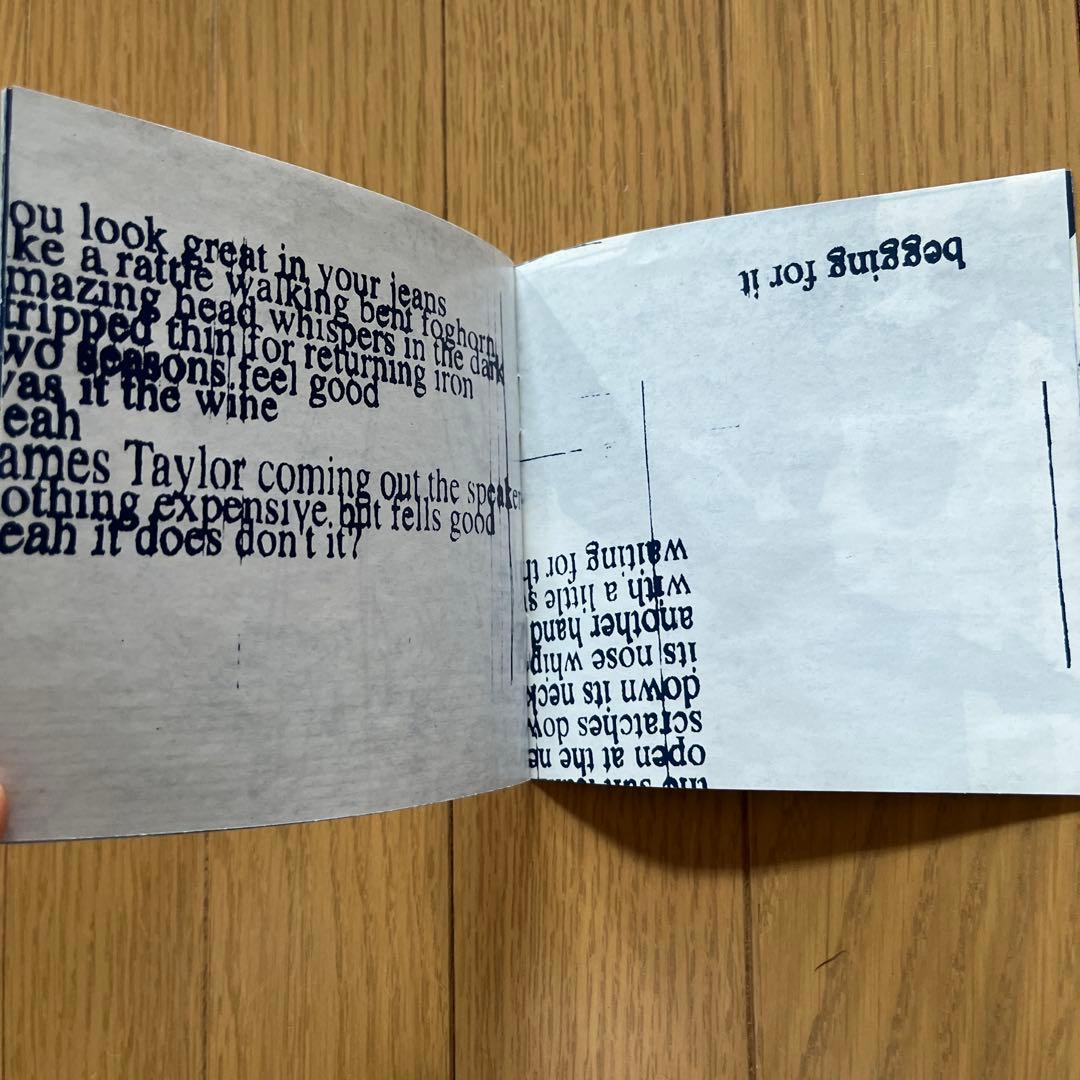 ou look great in your jeans
ke a rattle walking bent foghorn
mazing head whispers in the dark
tripped thin for returning iron
wo seasons feel good
as it the wine
eah
ames Taylor coming out the speaker
othing expensive but fells good
eah it does don't it?
the sun
open at the ne
scratches dow
down its neck
its nose whip
another hand
with a little s
waiting for th
begging for it